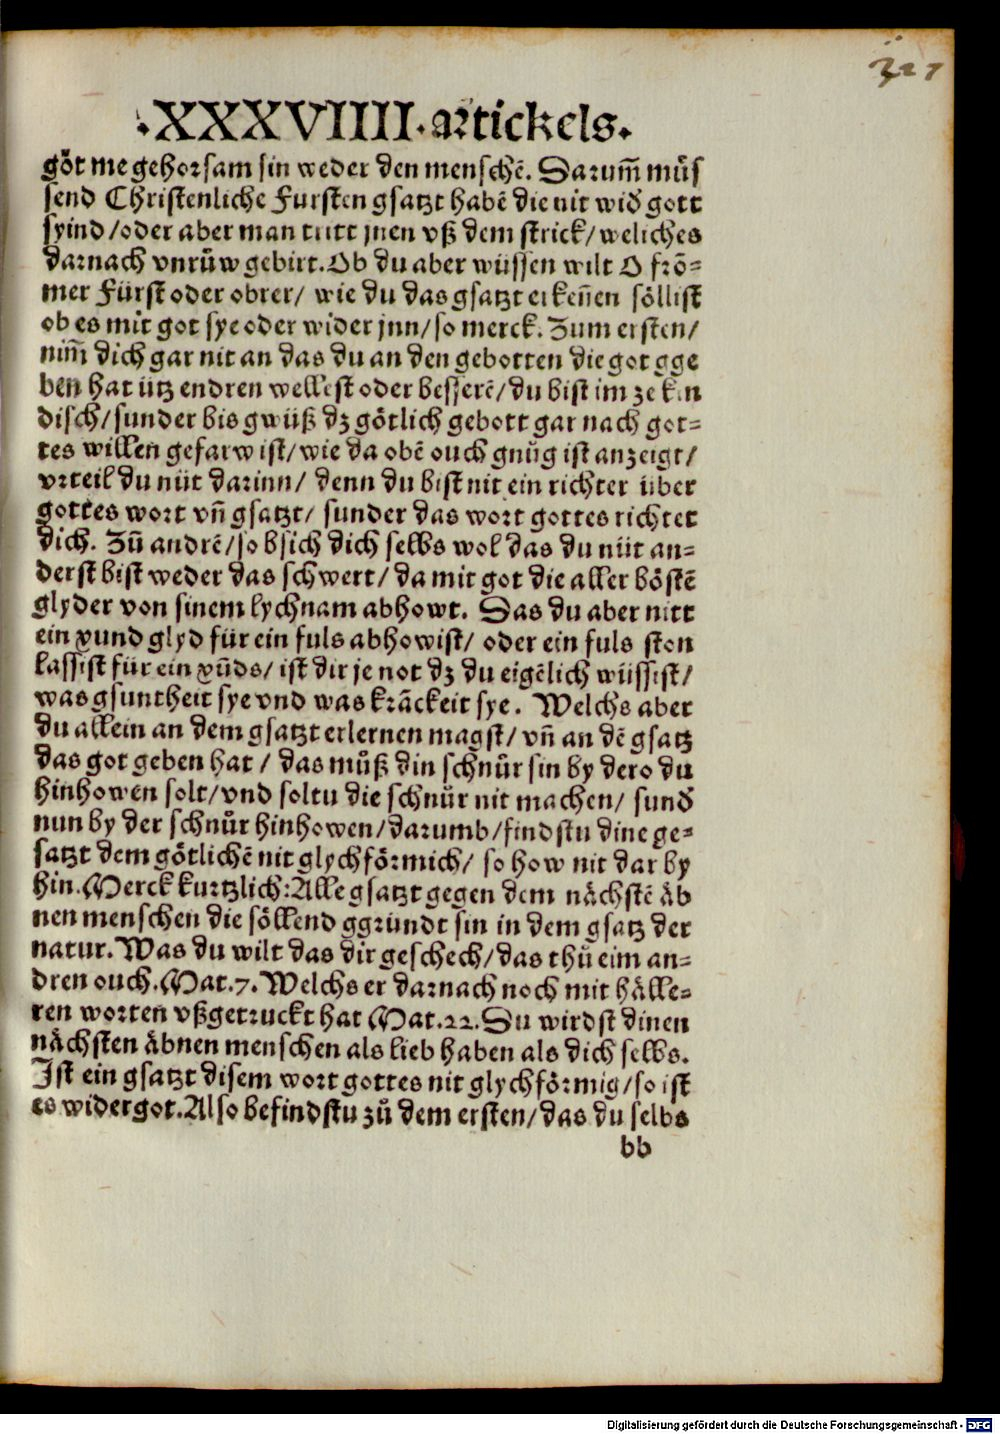 327
.XXXVIIII. artickels.
göt me gehorsam sin weder den menschẽ. Darum̃ můs
send Christenliche Fursten gsatzt habẽ die nit wid̕ gott
syind / oder aber man tritt jnen vß dem strick / weliches
darnach vnrůw gebirt. Ob du aber wüssen wilt O frõ=
mer Fürst oder obrer / wie du das gsatzt erkeñen söllist
ob es mit got sye oder wider jnn / so merck. Zum ersten /
nim̃ dich gar nit an das du an den gebotten die got gge
ben hat ütz endren wellest oder besserẽ / du bist im ze kin
disch / sunder bis gwüß dz götlich gebott gar nach got=
tes willen gefarw ist / wie da obẽ ouch gnůg ist anzeigt /
vrteil du nüt darinn / denn du bist nit ein richter über
gottes wort vñ gsatzt / sunder das wort gottes richtet
dich. Zů andrẽ / so bsich dich selbs wol das du nüt an=
derst bist weder das schwert / da mit got die aller böstẽ
glyder von sinem lychnam abhowt. Das du aber nitt
ein xund glyd für ein fuls abhowist / oder ein fuls ston
lassist für ein xũds / ist dir je not dz du eigẽlich wüssist /
was gsuntheit sye vnd was krãckeit sye. Welchs aber
du allein an dem gsatzt erlernen magst / vñ an dẽ gsatz
das got geben hat / das můß din schnůr sin by dero du
hinhowen solt / vnd soltu die schnůr nit machen / sund̕
nun by der schnůr hinhowen / darumb / findstu dine ge=
satzt dem götlichẽ nit glychförmich / so how nit dar by
hin. Merck kurtzlich: Alle gsatzt gegen dem nächstẽ äb
nen menschen die söllend ggründt sin in dem gsatz der
natur. Was du wilt das dir geschech / das thů eim an=
dren ouch. Mat. 7. Welchs er darnach noch mit hälle=
ren worten vßgetruckt hat Mat. 22. Du wirdst dinen
nächsten äbnen menschen als lieb haben als dich selbs.
Ist ein gsatzt disem wort gottes nit glychförmig / so ist
es wider got. Also befindstu zů dem ersten / das du selbs
bb
Digitalisierung gefördert durch die Deutsche Forschungsgemeinschaft - DFG